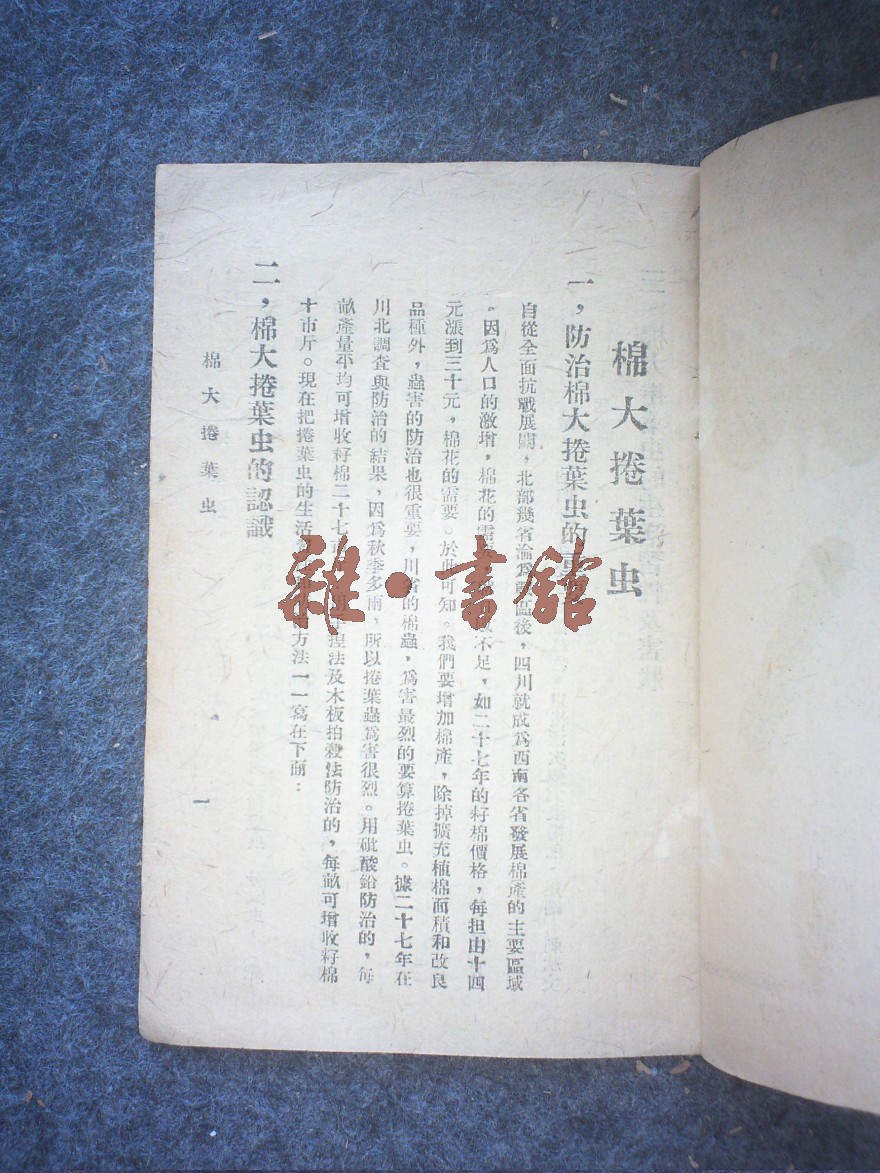 棉大捲葉虫
一，防治棉大捲葉虫的
自從全面抗戰展開，北部幾省淪爲戰區後，四川就成爲西南各省發展棉產的主要區域
。因爲人口的激增，棉花的需 不足，如二十七年的籽棉價格，每担由十四
元漲到三十元，棉花的需要。於此可知。我們要增加棉產，除掉擴充植棉面積和改良
品種外，蟲害的防治也很重要，川省的棉蟲，爲害最烈的要算捲葉虫。據二十七年在
川北調查與防治的結果，因爲秋季多雨，所以捲葉蟲爲害很烈。用砒酸鉛防治的，每
畝產量平均可增收籽棉二十七市 捏法及木板拍殺法防治的，每畝可增收籽棉
十市斤。現在把捲葉虫的生活 方法一一寫在下面：
二，棉大捲葉虫的認識
棉大捲葉虫
一
雜·書館